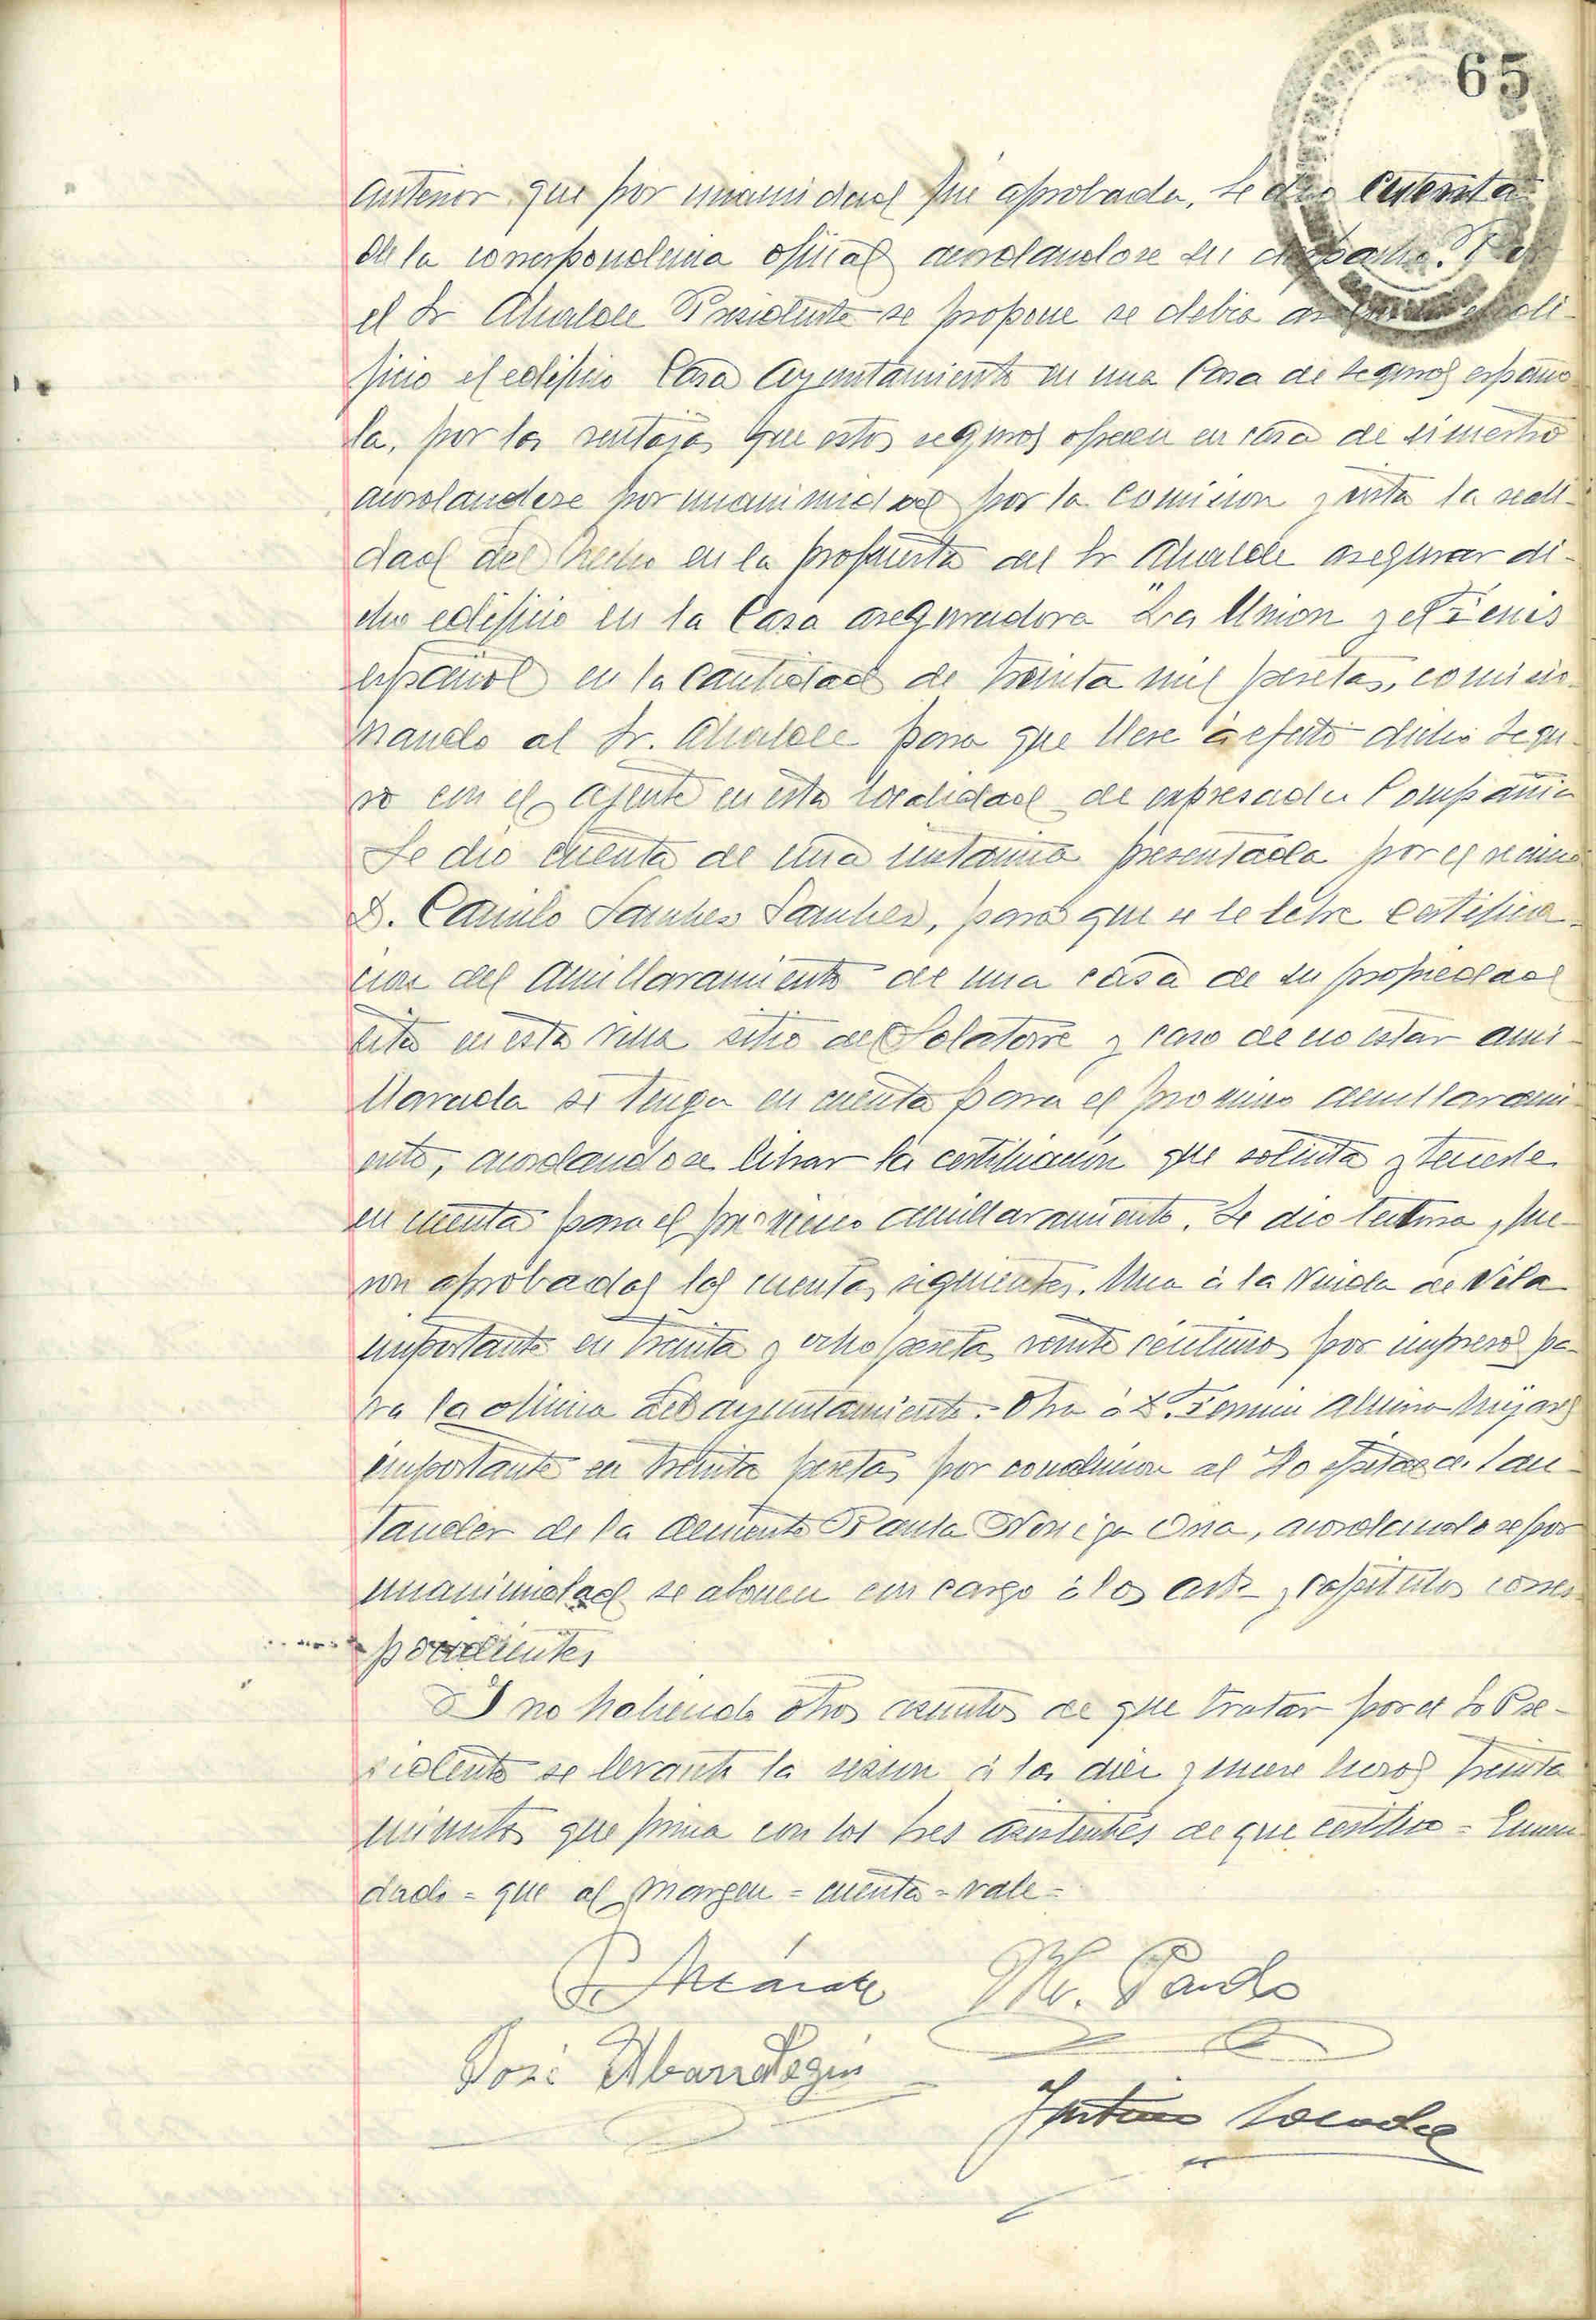 65
anterior que por unanimidad fué aprobada. Se dio cuenta
de la correspondencia oficial acordandose su despacho. Por
el Sr Alcalde Presidente se propone se debia edi-
ficio el edificio Casa Ayuntamiento en una Casa de seguros españo
la, por las ventajas que estos seguros ofrecen en caso de siniestro
acordandose por unanimidad por la Comision y vista la reali-
dad del hecho en la propuesta del Sr Alcalde asegurar di-
cho edificio en la Casa aseguradora "La Union y el Fenis
español en la cantidad de treinta mil pesetas, comisio-
nando al Sr. Alcalde para que lleve á efecto dicho segu-
ro con el agente en esta localidad de expresada Compañia
Se dio cuenta de una instancia presentada por el vecino
D. Camilo Sanchez Sanchez, para que se le libre certifica-
cion del amillaramiento de una casa de su propiedad
sita en esta villa sitio del Solatorre y caso de no estar ami-
llarada se tenga en cuenta para el proximo amillarami
ento, acordandose librar la certificación que solicita y tenerle
en cuenta para el proximo amillaramiento. Se dio lectura y fue-
ron aprobadas las cuentas siguientes. Una á la Viuda de Vila
importante en treinta y ocho pesetas veinte céntimos por impresos pa-
ra la oficina del ayuntamiento. Otra á D. Fermin Mijares
importante en treinta pesetas por conducion al Hospital de San-
tander de la demente Paula Noriega Oria, acordandose por
unanimidad se abonen con cargo á los arts y capitulos corres
pondientes
Y no habiendo otros asuntos de que tratar por el Sr Pre-
sidente se levanta la sesion á las diez y nueve horas treinta
minutos que firma con los tres asistentes de que certifico = Enmen
dado = que al margen = cuenta = vale =
M. Pardo
José Abarrategui